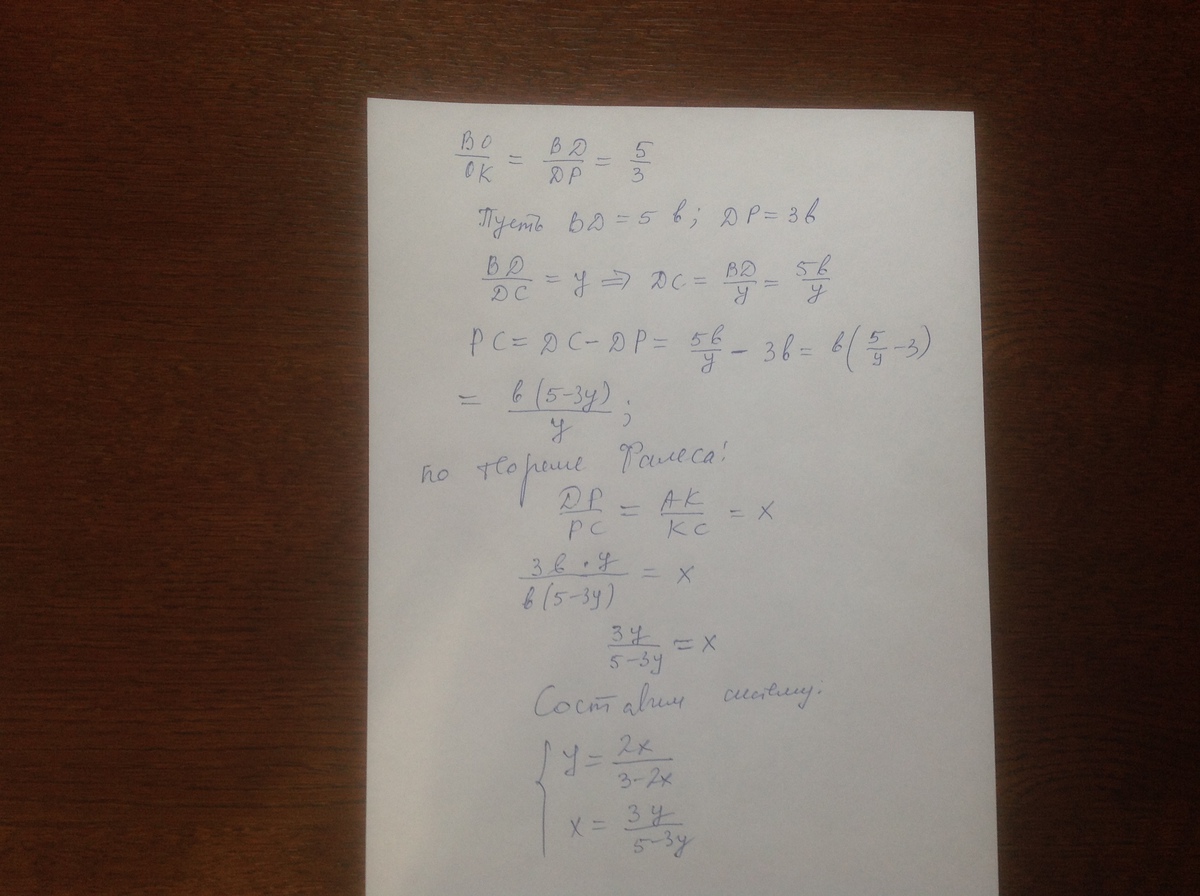 BO/OK = BD/DP = 5/3
Пусть BD = 5в; DP = 3в
BD/DC = y ⇒ DC = BD/y = 5в/y
PC = DC - DP = 5в/y - 3в = в(5/y - 3)
= в(5-3y)/y;
по теореме Фалеса:
DP/PC = AK/KC = x
3в·y/в(5-3y) = x
3y/5-3y = x
Составим систему:
{ y = 2x/3-2x
x = 3y/5-3y